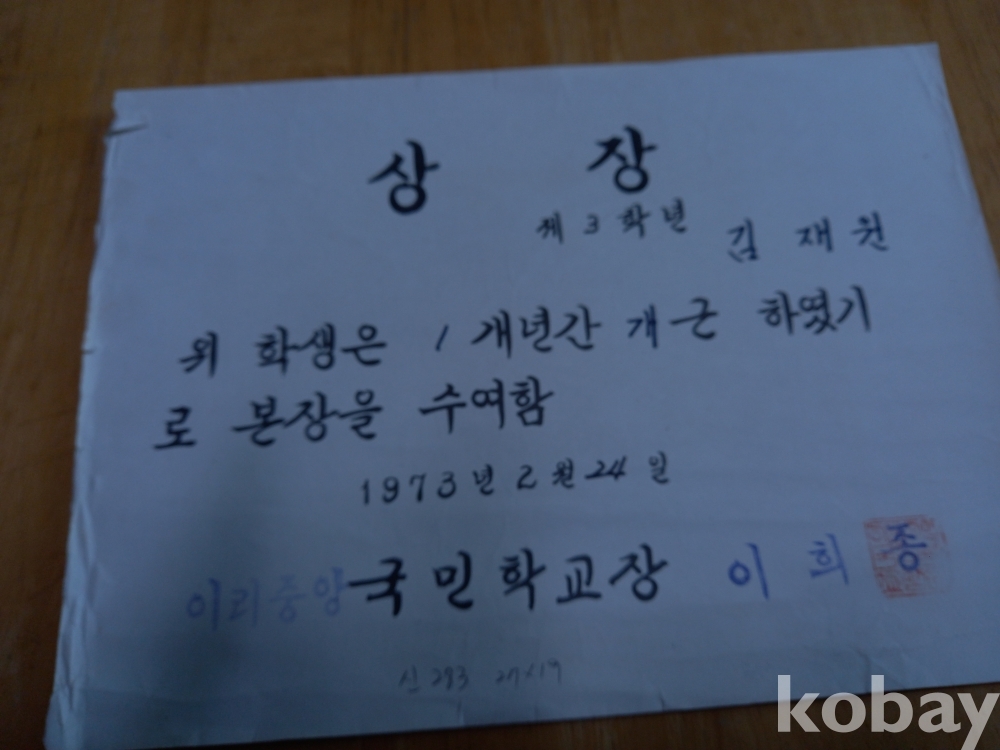 상 장
제 3 학년
김 재 원
위 학생은 1 개년간 개근 하였기
로 본장을 수여함
1973년 2월 24일
이리중앙국민학교장 이희종
신 283 27×19
kobay